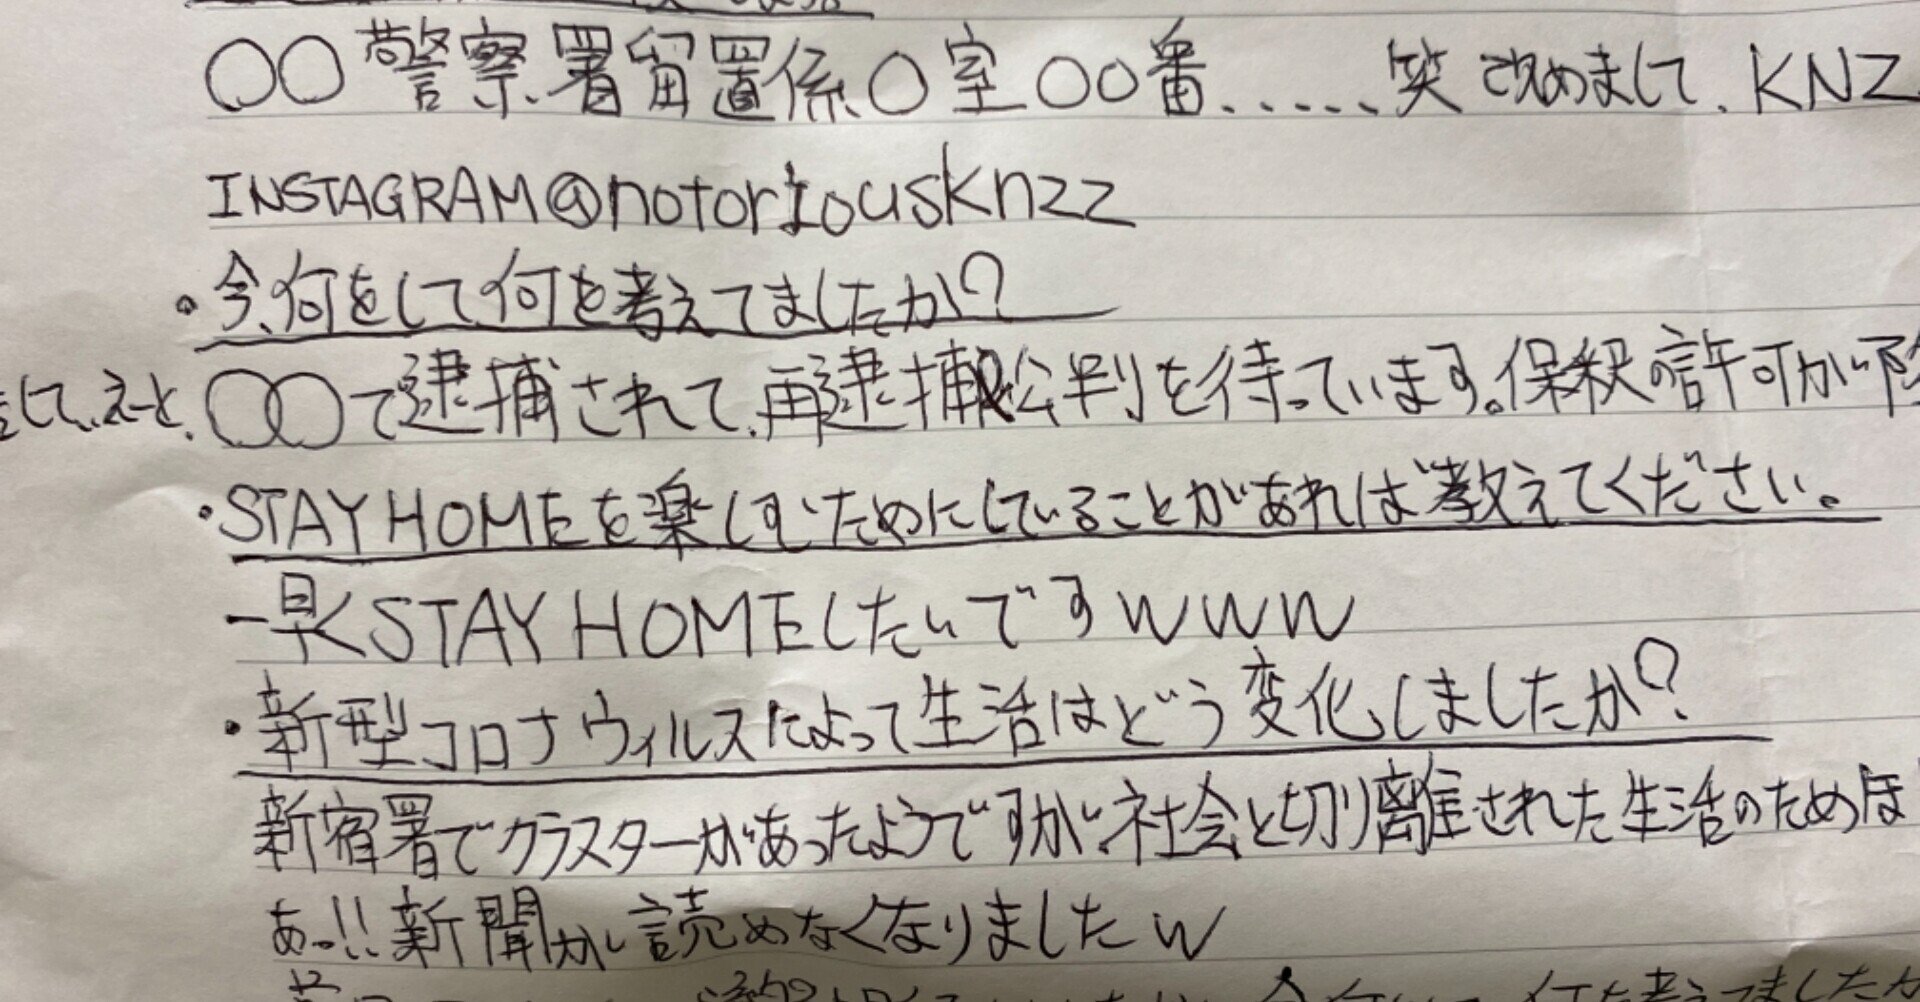 〇〇警察署留置係〇室〇〇番......笑 改めまして、KNZ
INSTAGRAM@notoriousknzz
・今、何をして何を考えてましたか?
して、えーと、〇〇で逮捕されて、再逮捕公判を待っています。保釈の許可が
・STAY HOMEを楽しむためにしていることがあれば教えてください。
一早くSTAY HOMEしたいですwww
・新型コロナウィルスによって生活はどう変化しましたか?
新宿署でクラスターがあったようですが、社会と切り離された生活のためほ
あっ!!新聞が読めなくなりましたw